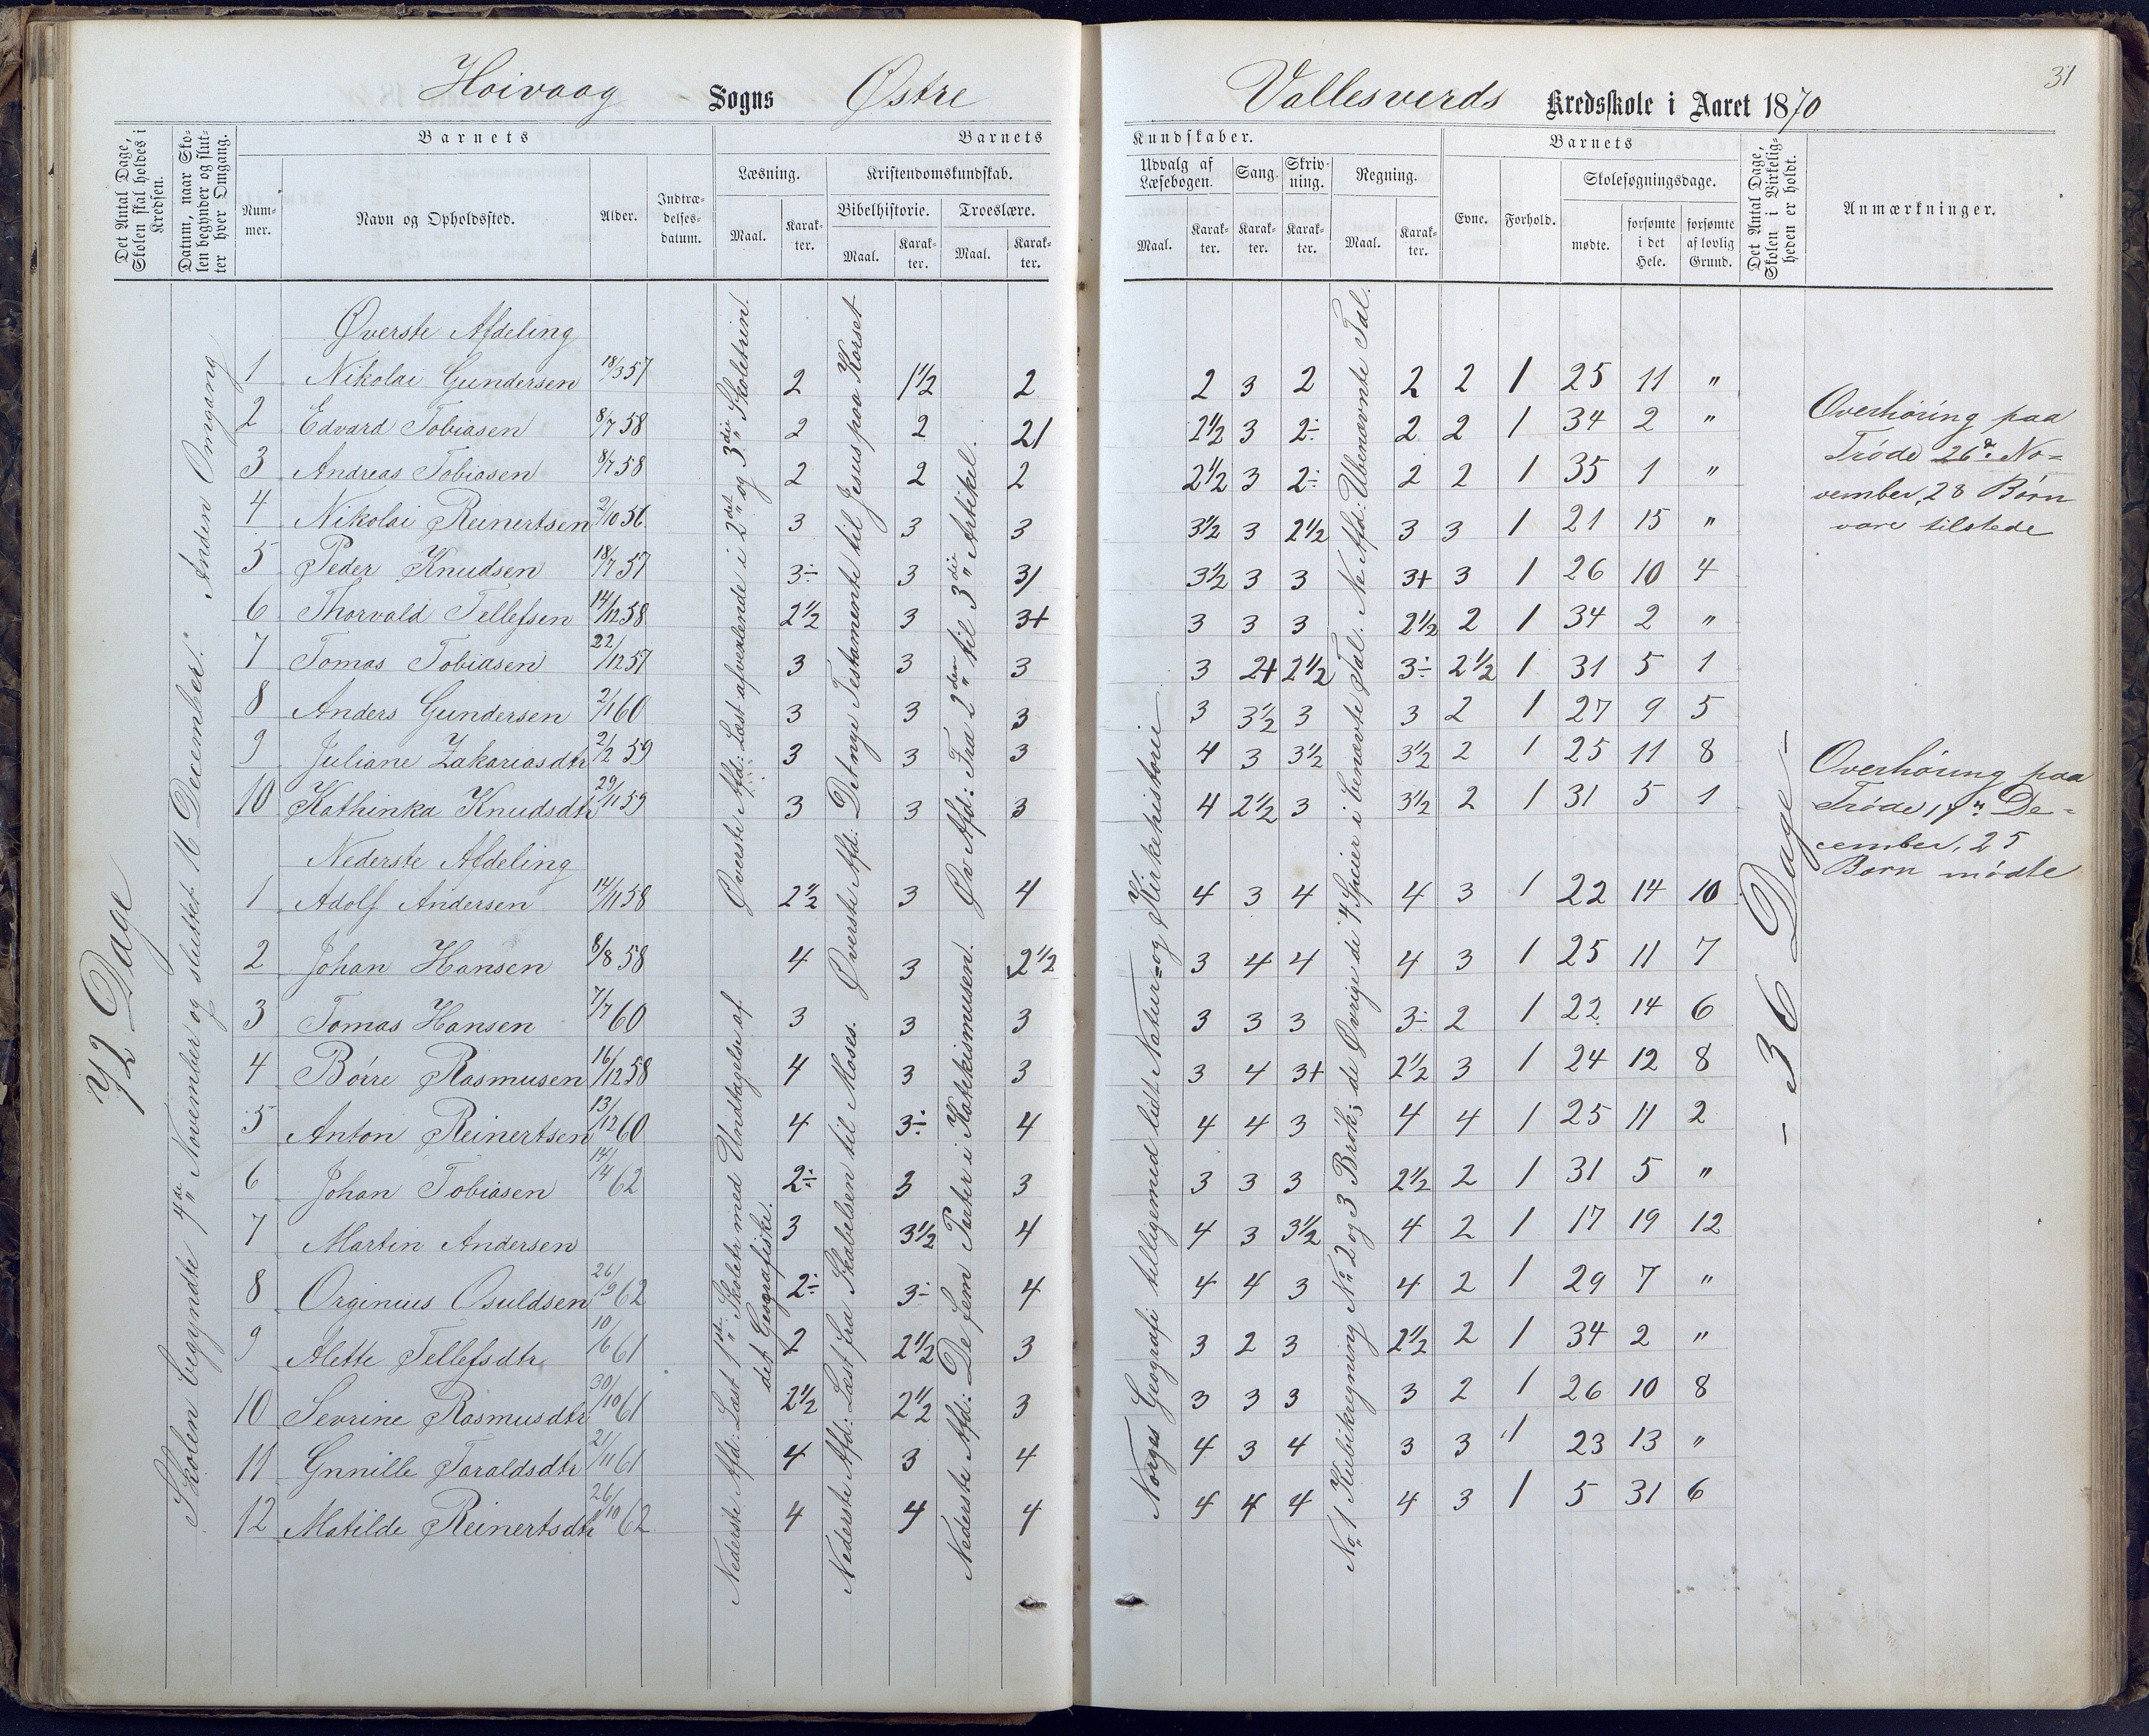 31
Hoivaag Sogns Østre Vallesverds Kredsskole i Aaret 1870
Det Antal Dage, Skolen skal holdes i Kredsen.
Datum, naar Skolen begynder og slutter hver Omgang.
Barnets
Nummer.
Navn og Opholdssted.
Alder.
Indtrædelsesdatum.
Barnets
Læsning.
Maal.
Karakter.
Kristendomskundskab.
Bibelhistorie.
Maal.
Karakter.
Troeslære.
Maal.
Karakter.
Kundskaber.
Udvalg af Læsebogen.
Maal.
Karakter.
Sang.
Karakter.
Skrivning.
Karakter.
Regning.
Maal.
Karakter.
Barnets
Evne.
Forhold.
Skolesøgningsdage.
mødte.
forsømte i det Hele.
forsømte af lovlig Grund.
Det Antal Dage, Skolen i Virkeligheden er holdt.
Anmærkninger.
72 Dage
Skolen begyndte 4de November og sluttet 16 December. Anden Omgang
Øverste Afdeling
1 Nikolai Gundersen 18/3 57 2 1½ 2 2 3 2 2 2 1 25 11 "
2 Edvard Tobiasen 8/7 58 2 2 21 2½ 3 2÷ 2 2 1 34 2 "
3 Andreas Tobiasen 8/7 58 2 2 2 2½ 3 2÷ 2 2 1 35 1 "
4 Nikolai Reinertsen 2/10 56 3 3 3 3½ 3 2½ 3 3 1 21 15 "
5 Peder Knudsen 18/7 57 3÷ 3 31 3½ 3 3 3+ 3 1 26 10 4
6 Thorvald Tellefsen 14/12 58 2½ 3 3+ 3 3 3 2½ 2 1 34 2 "
7 Tomas Tobiasen 22/12 57 3 3 3 3 2+ 2½ 3÷ 2½ 1 31 5 1
8 Anders Gundersen 2/1 60 3 3 3 3 3½ 3 3 2 1 27 9 5
9 Juliane Zakariasdtr 2/2 59 3 3 3 4 3 3½ 3½ 2 1 25 11 8
10 Kathinka Knudsdtr 29/11 59 3 3 3 4 2½ 3 3½ 2 1 31 5 1
Nederste Afdeling
1 Adolf Andersen 14/11 58 2½ 3 4 4 3 4 4 3 1 22 14 10
2 Johan Hansen 8/8 58 4 3 2½ 3 4 4 4 3 1 25 11 7
3 Tomas Hansen 7/7 60 3 3 3 3 3 3 3÷ 2 1 22 14 6
4 Börre Rasmusen 16/12 58 4 3 3 3 4 3+ 2½ 3 1 24 12 8
5 Anton Reinertsen 13/12 60 4 3÷ 4 4 4 3 4 4 1 25 11 2
6 Johan Tobiasen 14/14 62 2÷ 3 3 3 3 3 2½ 2 1 31 5 "
7 Martin Andersen 3 3½ 4 4 3 3½ 4 2 1 17 19 12
8 Orginius Osuldsen 26/9 62 2÷ 3÷ 4 4 4 3 4 2 1 29 7 "
9 Alette Tellefsdtr 10/6 61 2 2½ 3 3 2 3 2½ 2 1 34 2 "
10 Sevrine Rasmusdtr 30/10 61 2½ 2½ 3 3 3 3 3 2 1 26 10 8
11 Gnnille Taraldsdtr 21/11 61 4 3 4 4 3 4 3 3 1 23 13 "
12 Matilde Reinertsdtr 26/10 62 4 4 4 4 4 4 4 3 1 5 31 6
Øverste Afd: Læst afvexlende i 2det og 3die Skoletrin.
Nederste Afd: Læst 1ste Skoletr med Undtagelse af
det Geografiske.
Øverste Afd: Det nye Testamente til Jesus paa Korset
Nederste Afd: Læst fra Skabelsen til Moses.
Øv Afd: Fra 2den til 3die Artikel.
Nederste Afd: De fem Parter i Katekismusen.
Norges Geografi tilligemed lidt Natur= og Kirkehistorie
No 1 Kubikregning No 2 og 3 Brøk; de Øvrige de 4 Specier i benævnte Tal. Ne Afd: Ubenævnte Tal.
- 36 Dage -
Overhøring paa
Trøde 26de No=
vember, 28 Børn
vare tilstede
Overhøring paa
Trøde 14" De=
cember, 25
Børn mødte